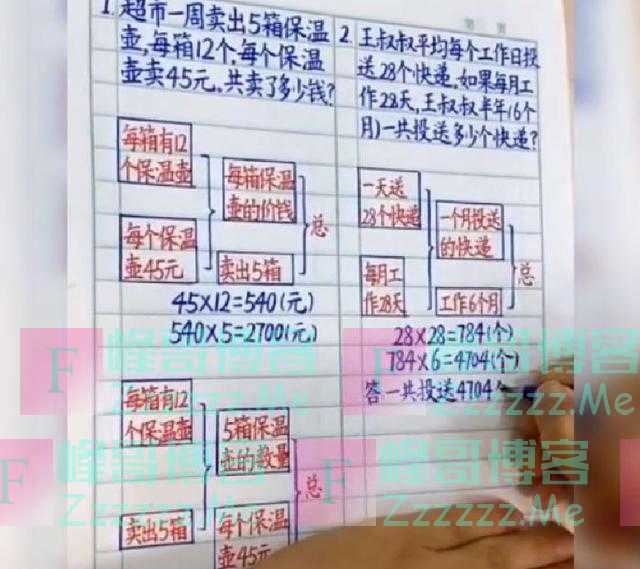 1.超市一周卖出5箱保温
壶,每箱12个,每个保温
壶卖45元,共卖了多少钱?
每箱有12
个保温壶
每箱保温
壶的价钱
总
每个保温
壶45元
卖出5箱
45×12=540(元)
540×5=2700(元)
每箱有12
个保温壶
5箱保温
壶的数量
总
卖出5箱
每个保温
壶45元
2.王叔叔平均每个工作日投
送28个快递,如果每月工
作28天,王叔叔半年(6个
月)一共投送多少个快递?
一天送
28个快递
一个月投送
的快递
总
每月工
作28天
工作6个月
28×28=784(个)
784×6=4704(个)
答一共投送4704个
F 峰哥博客
Zzzzzz.Me
F 峰哥博客
Zzzzzz.Me
F 峰哥博客
Zzzzzz.Me
F 峰哥博客
Zzzzzz.Me